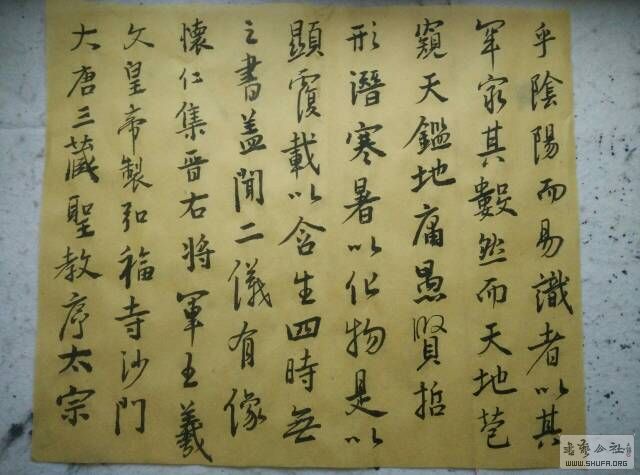 大唐三藏聖教序太宗
文皇帝製弘福寺沙門
懷仁集晉右將軍王羲
之書蓋聞二儀有像
顯覆載以含生四時無
形潛寒暑以化物是以
窺天鑑地庸愚賢哲
罕窮其數然而天地苞
乎陰陽而易識者以其
書藝公社
WWW.SHUFA.ORG